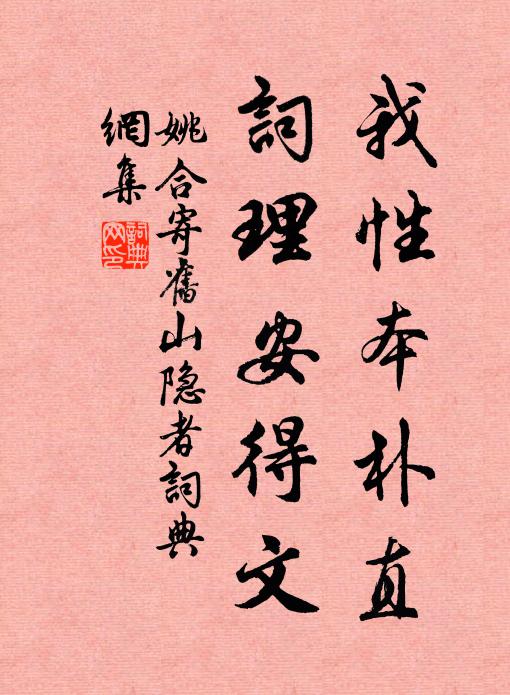 我性本朴直
詞理安得文
姚合寄舊山隐者詞典
網集
詞典
网印